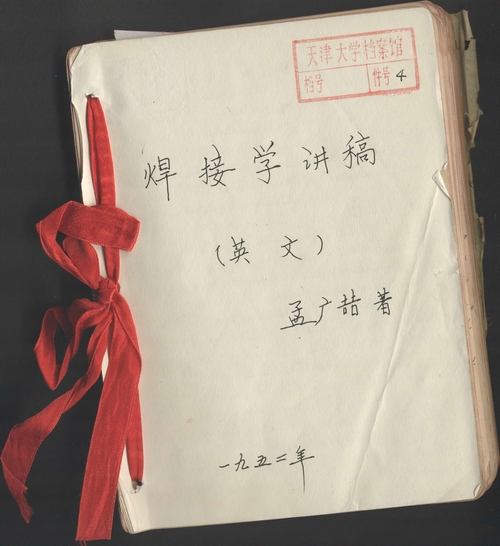 天津大学档案馆
档号 件号 4
焊接学讲稿
(英文)
孟广喆 著
一九五二年